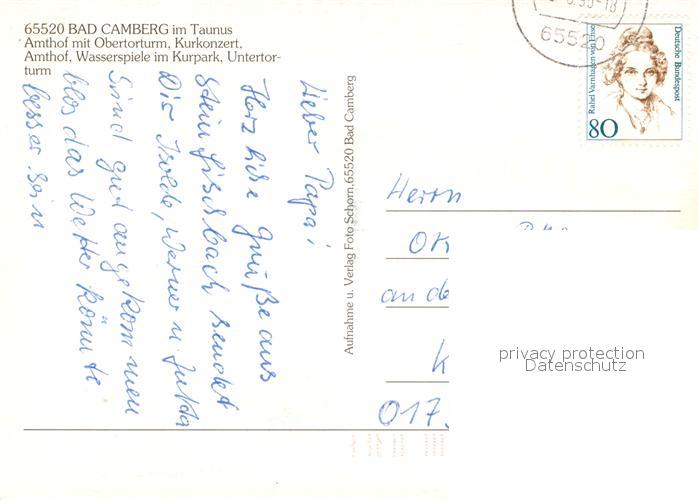 65520 BAD CAMBERG im Taunus
Amthof mit Obertorturm, Kurkonzert,
Amthof, Wasserspiele im Kurpark, Untertor-
turm
Lieber Papa!
Herzliche Grüße aus
Steinfischbach sendet
Dir Isolde, Werner u. Jutta
Sind gut angekommen
blos das Wetter könnte
besser sein
Aufnahme u. Verlag Foto Schorn, 65520 Bad Camberg
65520
Rahel Varnhagen von Ense
Deutsche Bundespost
80
Herrn
an de
017.
privacy protection
Datenschutz